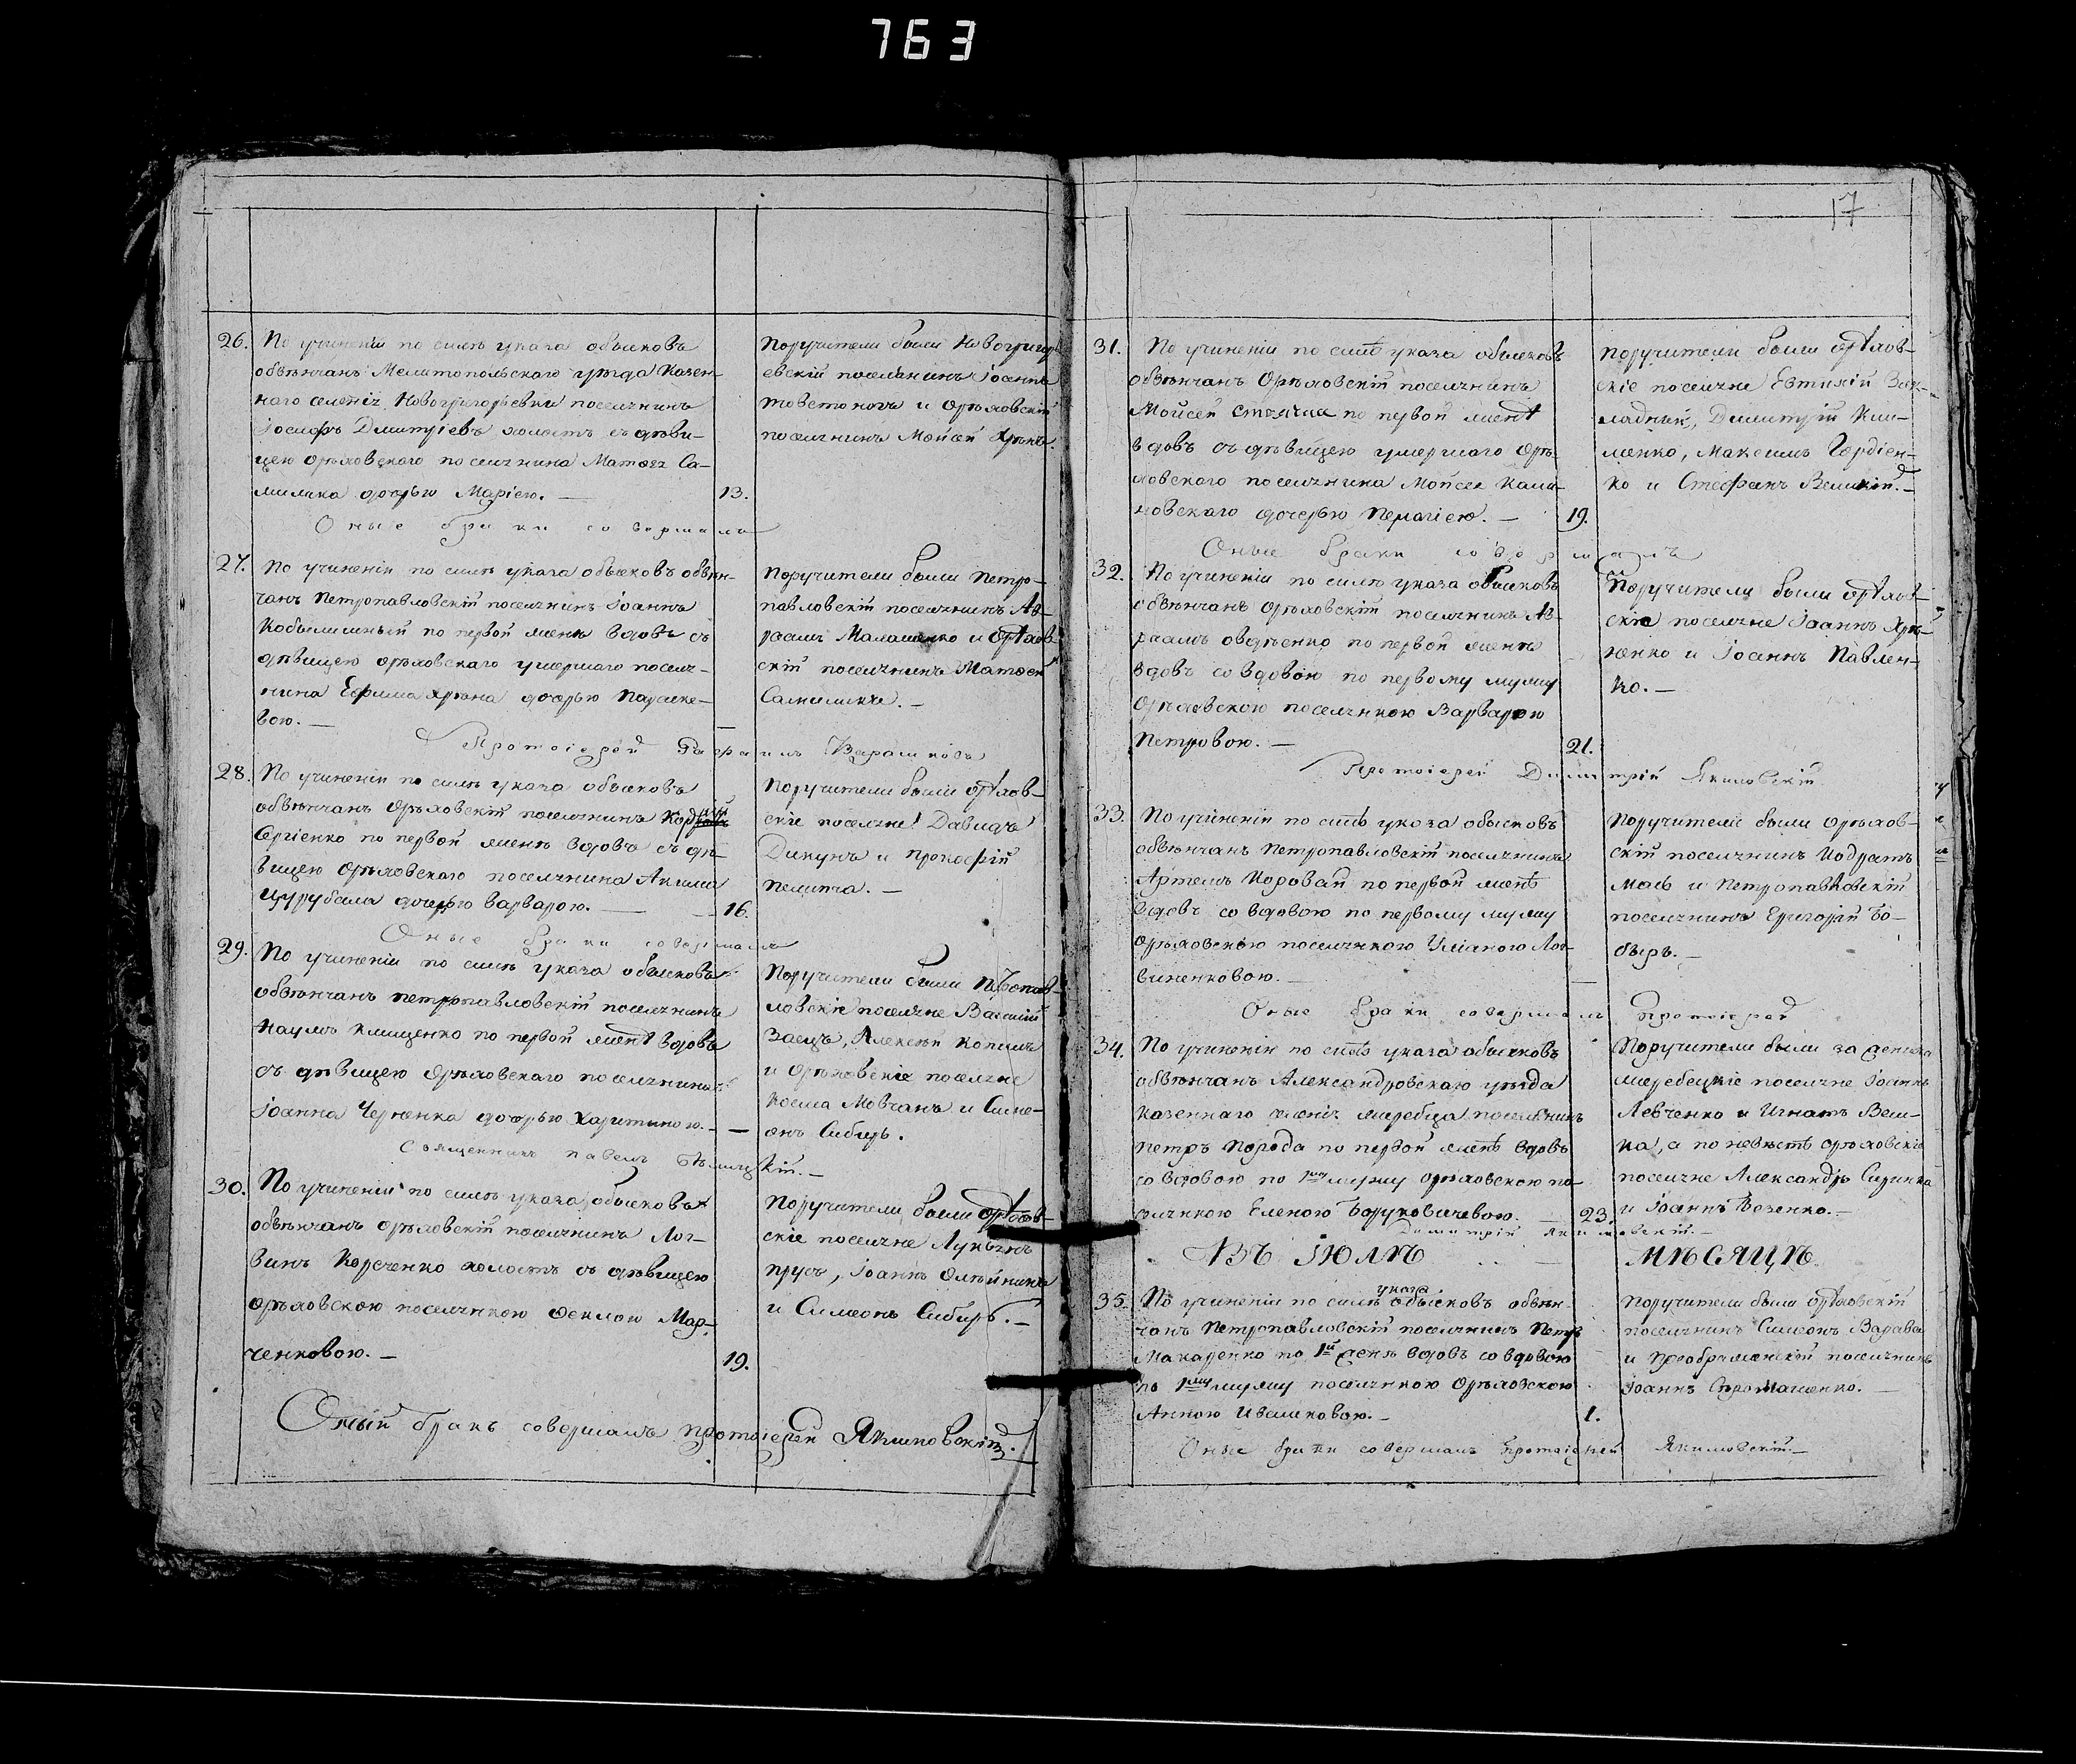 763
17
26. По учиненіи по силѣ указа обысковъ
обвѣнчанъ Мелитопольскаго уѣзда Казен-
наго селенія Новогригорьевки поселянинъ
Іосифъ Димитріевъ холостъ съ дѣви-
цею орѣховскаго поселянина Матѳея Са-
милика дочерью Маріею. — 13.
Поручители были Новогригорь-
евскій поселянинъ Іоаннъ
Товстоногъ и орѣховскій
поселянинъ Мойсей Хрѣнъ
Оные браки совершалъ
27. По учиненіи по силѣ указа обысковъ обвѣн-
чанъ Петропавловскій поселянинъ Іоаннъ
Кобылишный по первой женѣ вдовъ съ
дѣвицею орѣховскаго умершаго поселя-
нина Ефима Хрѣна дочерью Параске-
вою. — —
Поручители были Петро-
павловскій поселянинъ Ав-
раамъ Малашенко и орѣхов-
скій поселянинъ Матѳей
Самиликъ. —
Протоіерей
28. По учиненіи по силѣ указа обысковъ
обвѣнчанъ орѣховскій поселянинъ
Сергіенко по первой женѣ вдовъ съ дѣ-
вицею орѣховскаго поселянина Акима
Цурубала дочерью Варварою. — 16.
Поручители были орѣхов-
скіе поселяне Давидъ
Дикунъ и Прокофій
Пелипча. —
Оные браки совершалъ
29. По учиненіи по силѣ указа обысковъ
обвѣнчанъ петропавловскій поселянинъ
Наумъ Клищенко по первой женѣ вдовъ
съ дѣвицею орѣховскаго поселянина
Іоанна Черненка дочерью Харитиною. — —
Поручители были Петропав-
ловскіе поселяне Василій
Заецъ, Алексѣй Копилъ
и орѣховскіе поселяне
Косма Мовчанъ и Симе-
онъ Сибирь.
Священникъ Павелъ Бѣлицкій. —
30. По учиненіи по силѣ указа обысковъ
обвѣнчанъ орѣховскій поселянинъ Лог-
винъ Корсченко холостъ съ дѣвицею
орѣховскою поселянкою Ѳеклою Мар-
ченковою. — 19.
Поручители были орѣхов-
скіе поселяне Лукьянъ
Прусъ, Іоаннъ Олѣйникъ
и Симеонъ Сибирь. —
Оный бракъ совершалъ протоіерей Якимовскій.
31. По учиненіи по силѣ указа обысковъ
обвѣнчанъ Орѣховскій поселянинъ
Мойсей по первой женѣ
вдовъ съ дѣвицею умершаго орѣ-
ховскаго поселянина Мойсея Кали-
новскаго дочерью Пелагіею. — 19.
Поручители были орѣхов-
скіе поселяне Евтихій
Димитрій Кли-
менко, Максимъ Гордіен-
ко и Стефанъ Великій. —
Оные браки совершалъ
32. По учиненіи по силѣ указа обысковъ
обвѣнчанъ орѣховскій поселянинъ Ав-
раамъ Овдѣенко по первой женѣ
вдовъ со вдовою по первому мужу
Орѣховскою поселянкою Варварою
Петровою. — 21.
Поручители были орѣхов-
скіе поселяне Іоаннъ Хрѣ-
ненко и Іоаннъ Павлен-
ко. —
Протоіерей Димитрій Якимовскій
33. По учиненіи по силѣ указа обысковъ
обвѣнчанъ Петропавловскій поселянинъ
Артемъ Коровай по первой женѣ
вдовъ со вдовою по первому мужу
орѣховскою поселянкою Уліаною Лог-
виненковою. — —
Поручители были орѣхов-
скій поселянинъ Кодратъ
Мась и Петропавловскій
поселянинъ Григорій Бо-
быръ. —
Оные браки совершалъ Протоіерей
34. По учиненіи по силѣ указа обысковъ
обвѣнчанъ Александровскаго уѣзда
казеннаго селенія жеребца поселянинъ
Петръ Порода по первой женѣ вдовъ
со вдовою по 1му мужу орѣховскою по-
селянкою Еленою Боруковичевою. — 23.
Поручители были за жениха
жеребецкіе поселяне Іоаннъ
Левченко и Игнатъ Вели-
ка, а по невѣстѣ орѣховскіе
поселяне Александръ Сиринка
и Іоаннъ Безенко. —
Димитрій Якимовскій. —
ВЪ ІЮЛѢ МѢСЯЦѢ.
35. По учиненіи по силѣ указа обысковъ обвѣн-
чанъ Петропавловскій поселянинъ Петръ
Макаренко по 1й женѣ вдовъ со вдовою
по 1му мужу поселянкою Орѣховскою
Анною Ивашковою. — 1.
Поручители были орѣховскій
поселянинъ Симеонъ Варава
и Преображенскій поселянинъ
Іоаннъ —
Оные браки совершалъ Протоіерей Якимовскій. —